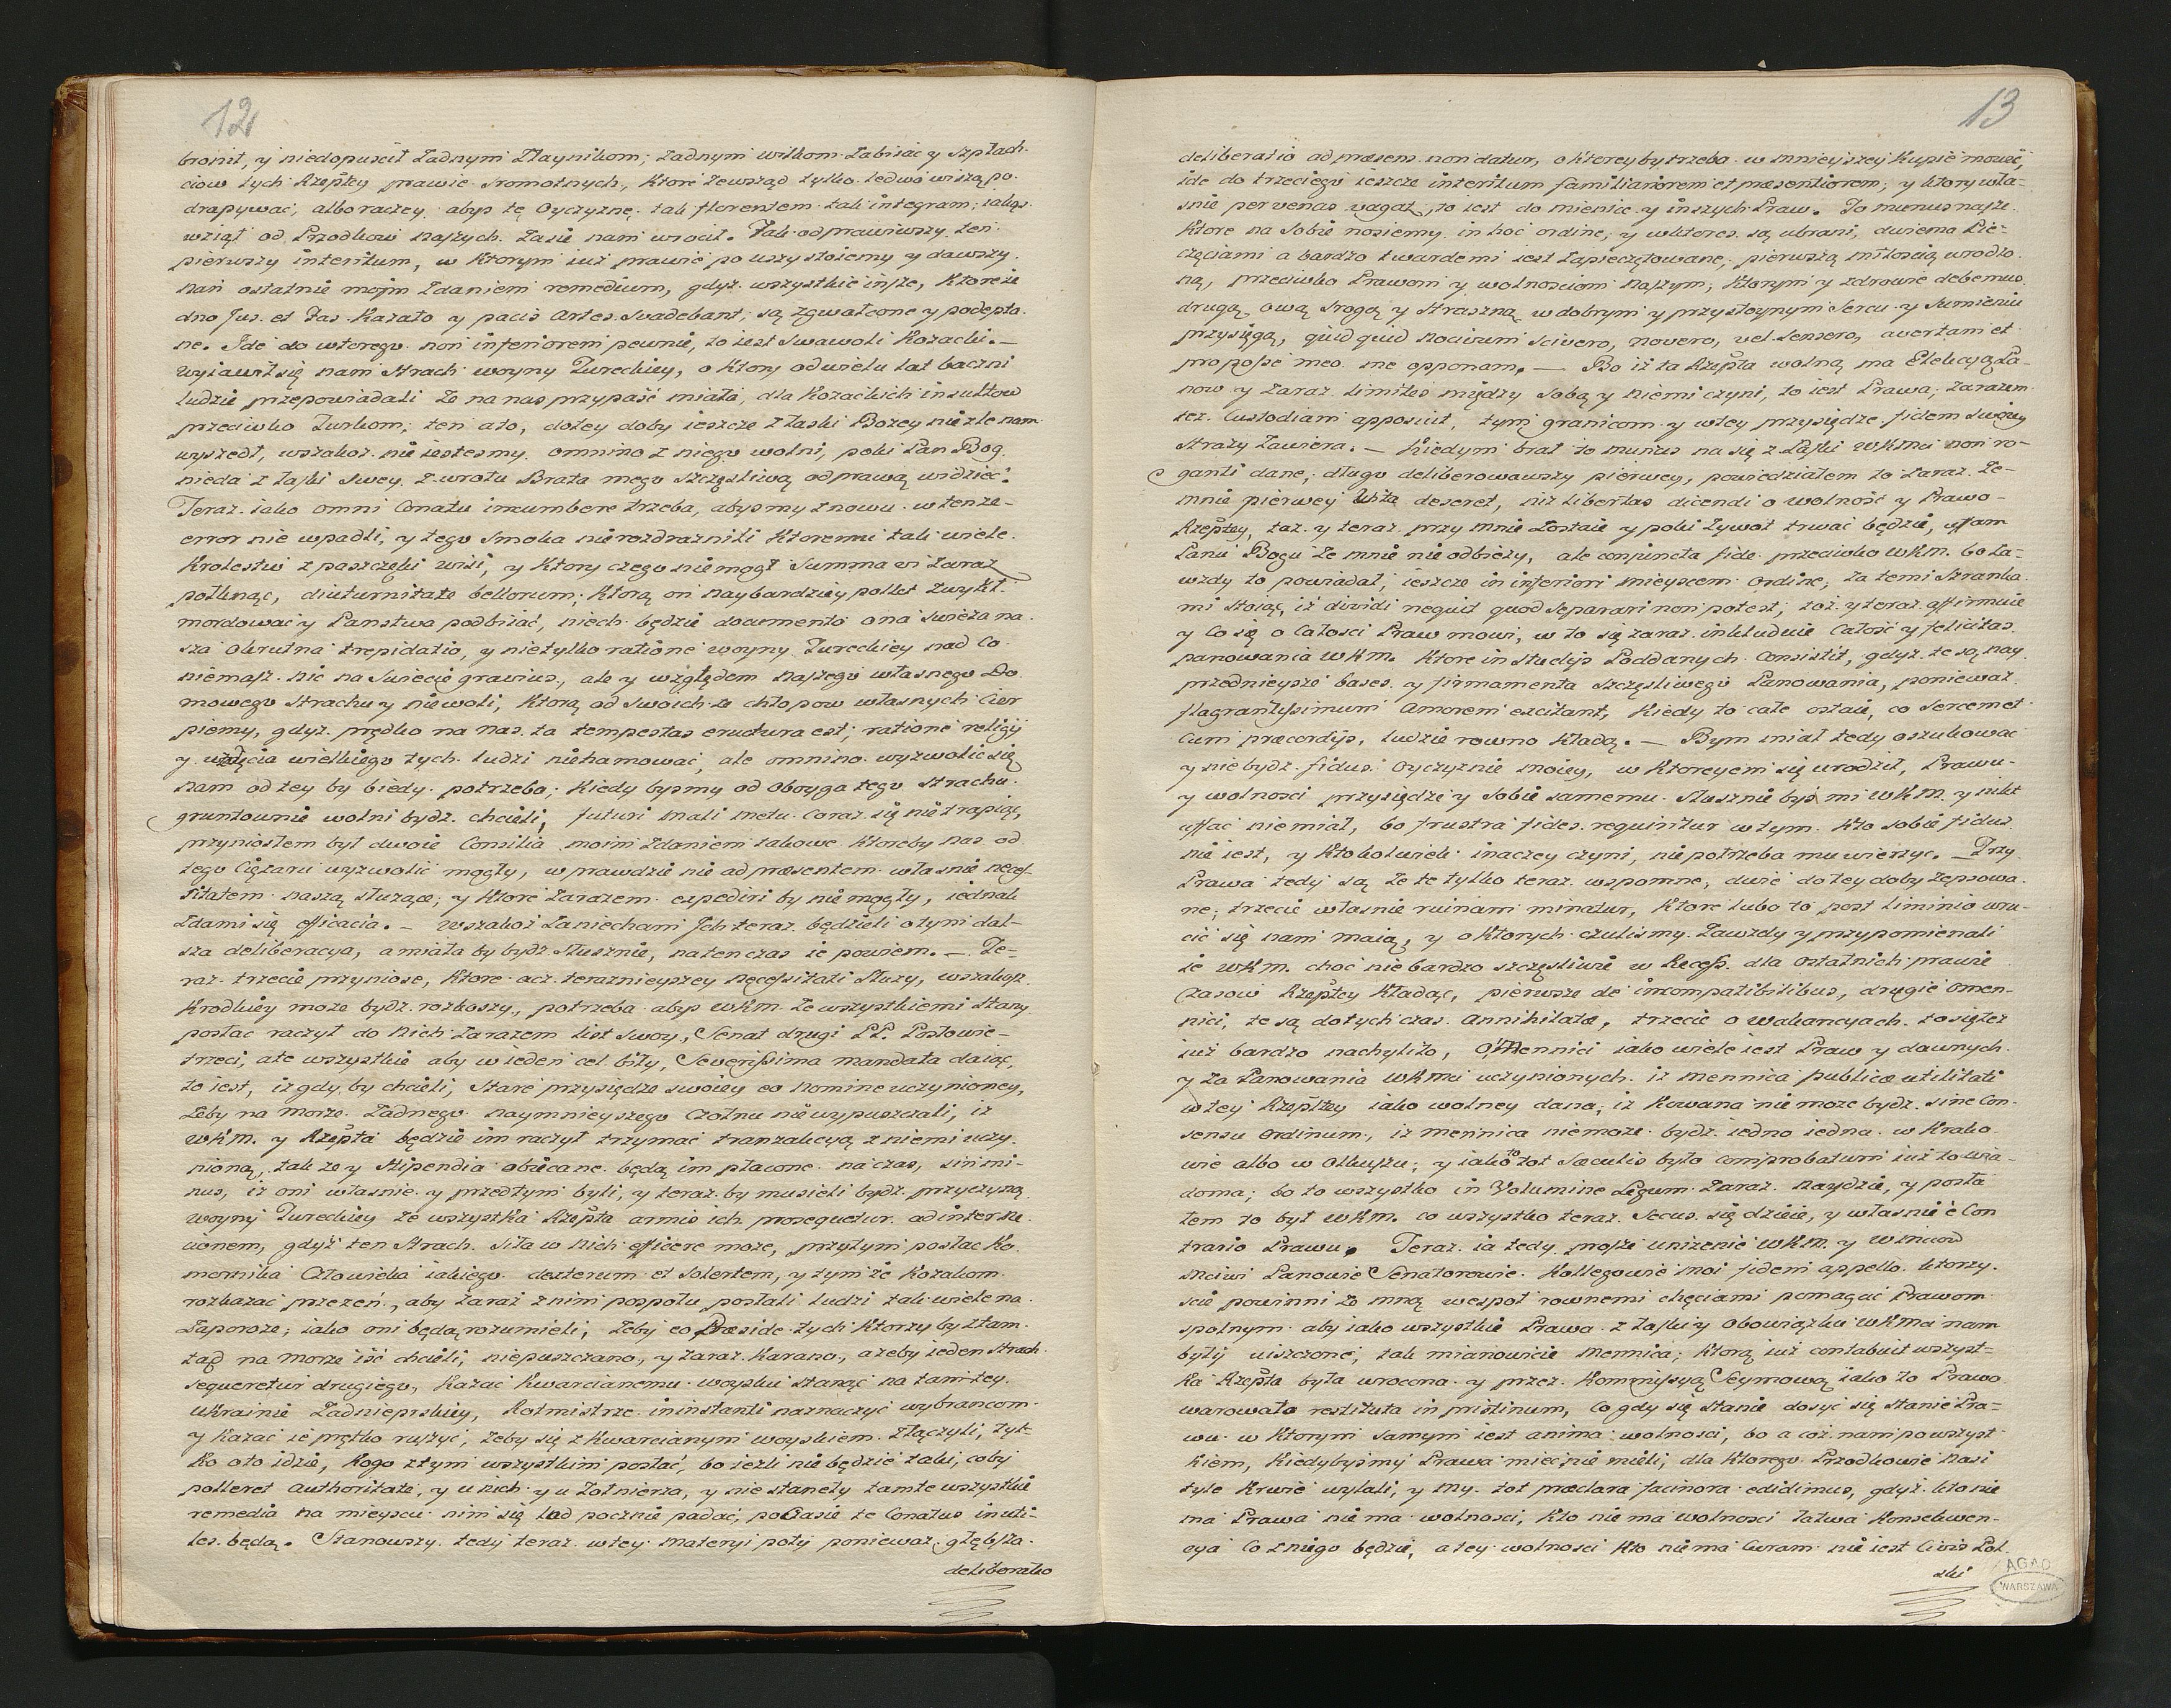 12
bronił, y niedopuścił Żadnym Złaynikom; Żadnym wilkom Zabiiać y Szpłach-
ciow tych Rzeptey prawie sromotnych, Ktore Zewsząd tylko ledwo wiszą po-
drapywać, albo raczey abyś tę Oyczyznę tak florentem tak integram; iakąś
wziął od Przodkow naszych. Zasie nam wrocił. Tak odprawiwszy ten
pierwszy interitum, w Ktorym iuż prawie po uszy stoiemy y dawszy
nań ostatnie moim Zdaniem remedium, gdyż wszystkie insze, Ktore ie
dno Jus et Fas Kazało y pacis artes Svadebant; są Zgwałcone y podepta-
ne. Idę do wtorego non inferiorem pewnie, to iest Swawoli Kozackiey. —
Wyiawił się nam Strach woyny Tureckiey, o Ktory od wielu lat baczni
ludzie przepowiadali Że na nas przypaść miała, dla Kozackich insultow
przeciwko Turkom; ten ato, dotey doby ieszcze Z Łaski Bożey nie źle nam
wyszedł, wszakoż nie iestesmy omnino z niego wolni, poki Pan Bog
nieda z Łaski Swey Z wrotu Brata mego Szczęśliwą odprawą widzieć.
Teraz iako omni Conatu incumbere trzeba, abysmy znowu w tenże
error nie wpadli, y tego Smoka nierozdraznili Ktoremu tak wiele
Krolestw z paszczęki wisi, y Ktory czego nie mogł Summa vi Zaraz
połknąć, diuturnitate bellorum; Ktorą on naybardziey pollet Zwykł
mordować y Panstwa podbiiać, niech będzie documento ona swieża na-
sza okrutna trepidatio, y nietylko ratione woyny Tureckiey nad Co
niemasz nic na Swiecie gravius, ale y względem naszego własnego Do
mowego Strachu y niewoli, Ktorą od Swoich że chłopow własnych Cier
piemy, gdyż prędko na nas ta tempestas eruditura est; ratione religij
y wzięcia wielkiego tych ludzi nie hamować, ale omnino wyzwolić się
nam od tey by biedy potrzeba; Kiedy bysmy od oboyga tego Strachu
gruntownie wolni bydz chcieli; futuri mali metu coraz się nie trapiąc,
przyniosłem był dwoie Consilia moim Zdaniem takowe Ktoreby nas od
tego Ciężaru wyzwolić mogły, wprawdzie nie ad præsentem własnie neces-
sitatem naszą służące, y Ktore Zarazem expediri by nie mogły, iednak
Zdami się efficacia. — Wszakoż Zaniecham Ich teraz będzieli o tym dal-
sza deliberacya, a miała by bydz Słusznie, na ten czas ie powiem. — Te-
raz trzecie przyniose, Ktore acz teraznieyszey necessitati Służy, wszakosz
Krodkiey może bydz rozkoszy, potrzeba abyś WKM ze wszystkiemi Stany
posłać raczył do nich Zarazem list Swoy, Senat drugi PP. Posłowie
trzeci, ale wszystkie aby w ieden cel biły, Severissima mandata daiąc,
to iest, iż gdy by chcieli, Starć przysiędze swoiey eo nomine uczynioney,
żeby na morze Żadnego naymnieyszego Czołnu nie wypuszczali, iż
WKM. y Rzepta będzie im raczył trzymać tranzakcyą z niemi uczy-
nioną, tak że y Stipendia obiecane będą im płacone na czas, sin mi-
nus, iż oni własnie y przedtym byli, y teraz by musieli bydz przyczyną
woyny Tureckiey że wszystka Rzepta armis ich prosequetur ad interne-
cionem, gdyż ten Strach Siła w nich efficere może, przytym posłać Ko-
mornika Człowieka iakiego dexterum et solertem, y tymże Kozakom
rozkazać przezeń, aby Zaraz z nim pospołu posłali ludzi tak wiele na
Zaporoże; iako oni będą rozumieli, żeby eo Præside tych Ktorzy by ztam-
tąd na morze iść chcieli, niepuszczano, y Zaraz Karano, a żeby ieden Strach
sequeretur drugiego, Kazać Kwarcianemu woysku stanąć na tamtey
Ukrainie Zadnieprskiey, Rotmistrze in instanti naznaczyć wybrancom
y Kazać ie prętko ruszyć, żeby się z Kwarcianym woyskiem złączyli, tyl-
ko o to idzie, Kogo z tym wszystkim posłać, bo iezli nie będzie taki, coby
polleret authoritate, y u nich y u Żołnierza, y nie stanęły tamte wszystkie
remedia na mieyscu nim się lod pocznie padać, po Czasie te Conatus inuti-
les będą. Stanowszy tedy teraz w tey materyi poty ponieważ głębsza
deliberatio
13
deliberatio ad præsens non datur, o Ktorey by trzeba w mnieyszey Kupie mowić,
ide do trzeciego ieszcze interitum familiariorem et præsentiorem; y Ktory wła-
snie per venas vagat, to iest do mienice y inszych Praw. To munus nasze
Ktore na Sobie nosiemy in hoc ordine, y wktores są ubrani, dwiema Pie-
częciami a bardzo twardemi iest Zapieczętowane; pierwszą miłością wrodzo-
ną, przeciwko Prawom y wolnosciom naszym, Ktorym y zdrowie debemus
drugą, ową srogą y Straszną w dobrym y przystoynym Sercu y Sumieniu
przysięgą, quid quid nocivum scivero, novero, vel sensero, avertam et
pro posse meo me opponam. — Bo iż ta Rzepta wolną ma Elekcyą Pa-
now y Zaraz limites między Sobą y niemi czyni, to iest Prawa; zarazem
tez Custodiam apposuit, tym granicom y wtey przysiędze fidem Swoiey
Straży Zawiera. — Kiedym brał to munus na się z Łaski WKMci non ro-
ganti dane; długo deliberowawszy pierwey, powiedziałem to Zaraz że
mnie pierwey Vita deseret, niż libertas dicendi o wolność y Prawo
Rzeptey, taż y teraz przy mnie Zostaie y poki Żywot trwać będzie, uffam
Panu Bogu że mnie nie odbieży, ale conjuncta fide przeciwko WKM. bo Za-
wzdy to powiadał, ieszcze in inferiori mieyscem ordine, Za temi Szranka
mi stoiąc, iż dividi nequit quod separari non potest; toż y teraz affirmuie
y Co się o Całosci Praw mowi, w to się zaraz inkluduie Całość y felicitas
panowania WKM. Ktore in studijs Poddanych Consistit, gdyż te są nay
przednieysze bases y firmamenta szczęsliwego Panowania, ponieważ
flagrantissimum amorem excitant, Kiedy to całe ostaie, co sercem et
cum præcordijs, ludzie rowno Kładą. — Bym miał tedy oszukować
y nie bydz fidus Oyczyznie moiey, w Ktoreyem się urodził, Prawu
y wolnosci przysiędze y Sobie samemu Słusznie byś mi WKM. y nikt
uffać nie miał, bo frustra fides requiritur w tym Kto sobie fidus
nie iest, y Ktokolwiek inaczey czyni, nie potrzeba mu wierzyc. — Trzy
Prawa tedy są że te tylko teraz wspomne, dwie do tey doby Zepsowa-
ne; trzecie własnie ruinam minatur, Ktore lubo to post liminio wru-
cić się nam maią, y o Ktorych czulismy Zawzdy y przypomienali
ie WKM. choć nie bardzo szczęsliwie w Recess. dla ostatnich prawie
czasow Rzeptey Kładąc, pierwsze de incompatibilibus, drugie Omen-
nici, te są dotychczas annihilata, trzecie o Wakancyach to się też
iuż bardzo nachyliło, O Mennici iako wiele iest Praw y dawnych
y Za Panowania WKMci uczynionych iż mennica publicæ utilitati
wtey Rzeptey iako wolney dana, iż Kowana nie może bydz sine Con-
sensu Ordinum, iż mennica niemoże bydz iedno iedna w Krako-
wie albo w Olkuszu; y iako to tot Sæculis było comprobatum iuż to wia-
doma; bo to wszystko in Volumine Legum Zaraz naydzie, y posła
łem to był WKM. co wszystko teraz secus się dzieie, y własnie è Con
trario Prawu. Teraz ia tedy proszę uniżenie WKM. y WMciow
Mciwi Panowie Senatorowie Kollegowie moi fidem appello Ktorzy-
scie powinni ze mną wespoł rownemi chęciami pomagać Prawom
spolnym aby iako wszystkie Prawa z Łaski y Obowiązku WKMci nam
były uiszczone; tak mianowicie mennica; Ktorą iuż contabuit wszyst-
ka Rzepta była wrocona y przez Kommissyą Seymową iako to Prawo
warowało restituta in pristinum, Co gdy się Stanie dosyć się stanie Pra-
wu w Ktorym samym iest anima wolnosci, bo a coż nam po wszyst-
kiem, Kiedybysmy Prawa mieć nie mieli; dla Ktorego Przodkowie nasi
tyle Krwie wylali, y my tot præclara facinora edidimus, gdyż kto nie
ma Prawa nie ma wolnosci, Kto nie ma wolnosci łatwa Konsekwen-
cya Co z niego będzie, a tey wolnosci Kto nie ma Curam nie iest Civis Pol-
ski
AGAD
WARSZAWA